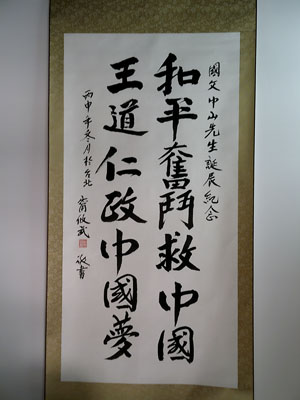 國父中山先生誕辰紀念
和平奮鬥救中國
王道仁政中國夢
丙申年冬月於台北
敬書